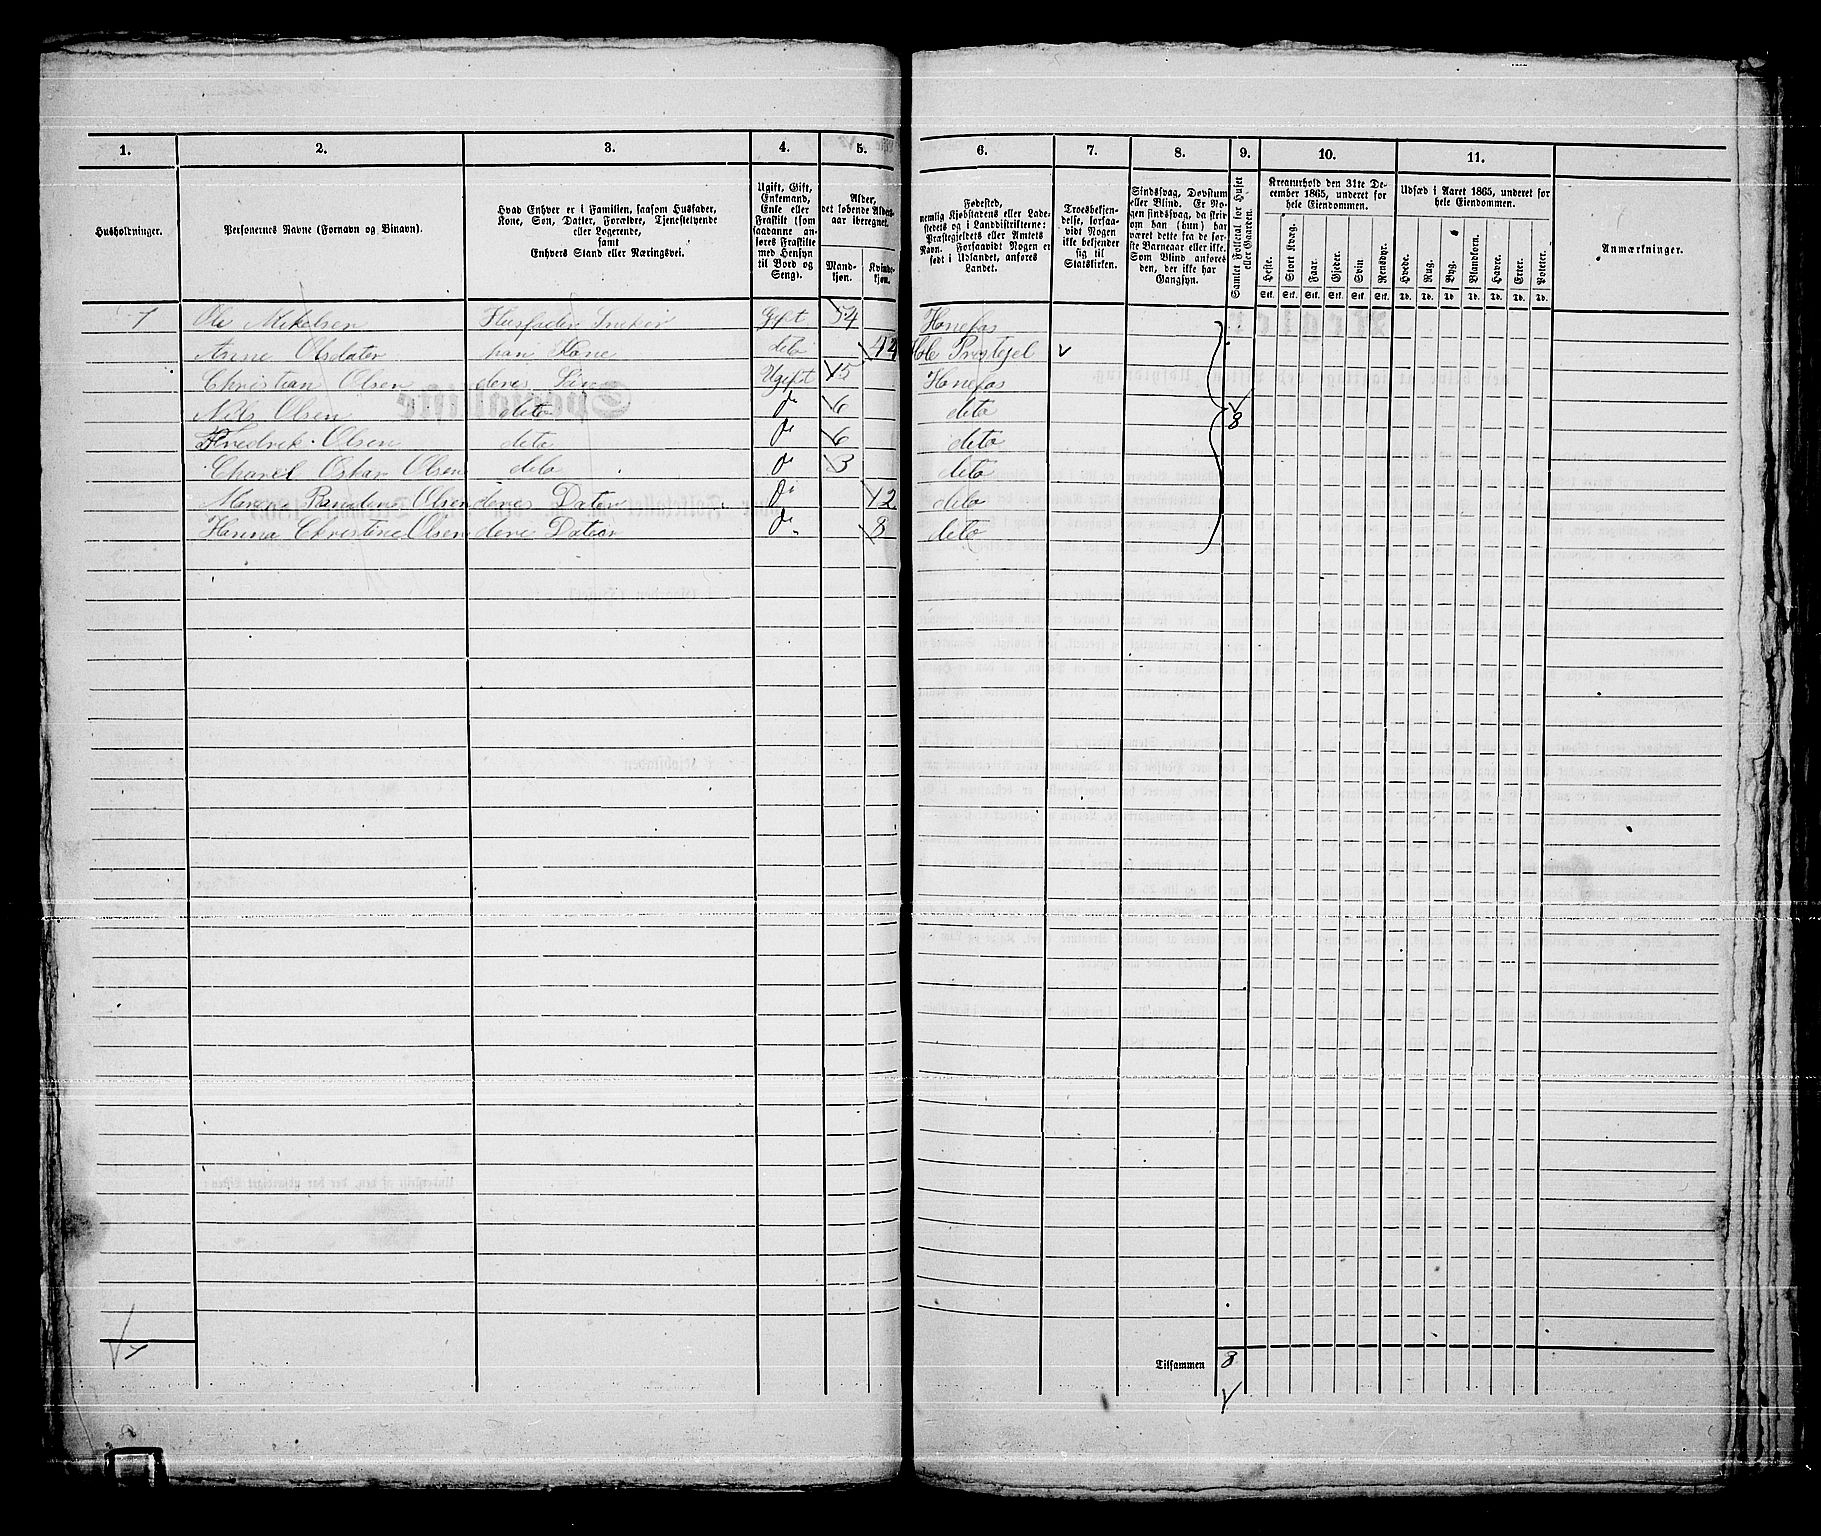 1. 2. 3. 4. 5. 6. 7. 8. 9. 10. 11.
Husholdninger.
Personernes Navne (Fornavn og Binavn).
Hvad Enhver er i Familien, saasom Husfader,
Kone, Søn, Datter, Forældre, Tjenestetyende
eller Logerende,
samt
Enhvers Stand eller Næringsvei.
Ugift, Gift,
Enkemand,
Enke eller
Fraskilt (som
saadanne an-
føres Fraskilte
med Hensyn
til Bord og
Seng).
Alder,
det løbende Alders-
aar iberegnet.
Mand-
kjøn.
Kvinde-
kjøn.
Fødested,
nemlig Kjøbstadens eller Lade-
stedets og i Landdistrikterne:
Præstegjeldets eller Amtets
Navn. Forsaavidt Nogen er
født i Udlandet, anføres
Landet.
Troesbekjen-
delse, forsaa-
vidt Nogen
ikke bekjender
sig til
Statskirken.
Sindssvag, Døvstum
eller Blind. Er No-
gen sindssvag, da skri-
ves om han (hun) har
været dette fra de før-
ste Barneaar eller ikke.
Som Blind anføres
den, der ikke har
Gangsyn.
Samlet Folketal for Huset
eller Gaarden.
Kreaturhold den 31te De-
cember 1865, underet for
hele Eiendommen.
Heste. Stort Kvæg. Faar. Gjeder. Svin Rensdyr.
Stk. Stk. Stk. Stk. Stk. Stk.
Udsæd i Aaret 1865, underet for
hele Eiendommen.
Hvede. Rug. Byg. Blandkorn. Havre. Erter. Poteter.
Td. Td. Td. Td. Td. Td. Td.
Anmærkninger.
1 Ole Mikelsen Husfader Sneker Gift 54 Honefos
Anne Olsdater han Kone deto Hole Prestejel
Christian Olsen deres Sön Ugift 15 Honefos
Nils Olsen deto do 6 deto 8
Fredrek Olsen deto do 6 deto
Olsen deto do 3 deto
Olsen deres Dater do 12 deto
Hanna Christine Olsen deres Dater do 8 deto
Tilsammen 8